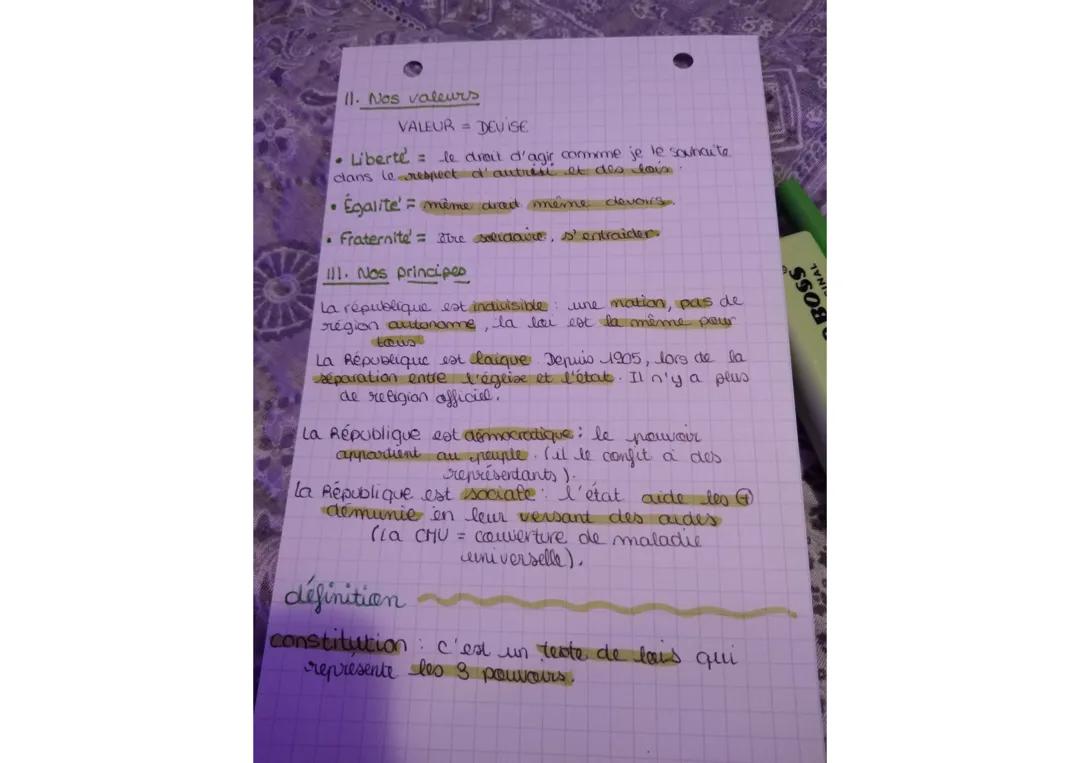 II. Nos valeurs
VALEUR = DEVISE
• Liberté = le droit d'agir comme je le souhaite
dans le respect d'autrui et des lois.
• Égalité = même droit même devoirs.
• Fraternité = être solidaire, s'entraider.
III. Nos principes
La république est indivisible : une nation, pas de
région autonome, la loi est la même pour
tous
La République est laïque. Depuis 1905, lors de la
séparation entre l'église et l'état. Il n'y a plus
de religion officiel.
La République est démocratique : le pouvoir
appartient au peuple. (il le confit à des
représentants).
La République est sociale : l'état aide les +
démunie en leur versant des aides
(La CMU = couverture de maladie
universelle).
définition
constitution : c'est un texte de lois qui
représente les 3 pouvoirs.
BOSS